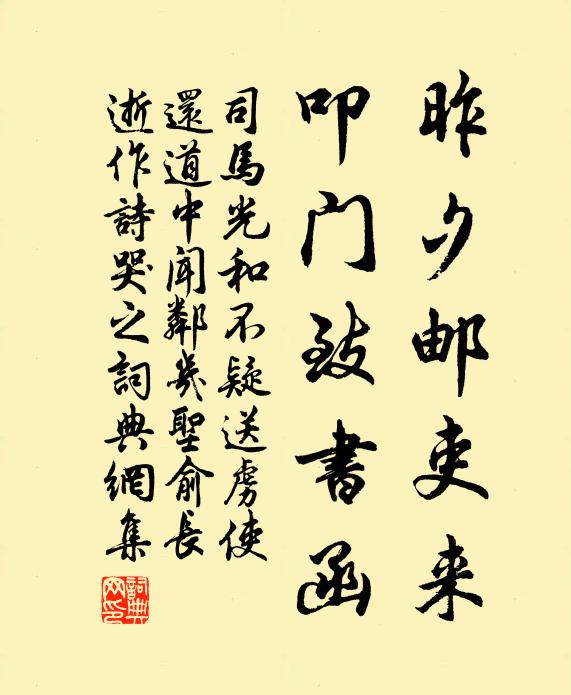 昨夕邮吏来
叩门致書函
司馬光和不疑送虜使
還道中闻鄰幾聖俞長
逝作詩哭之詞典網集
詞典
网印